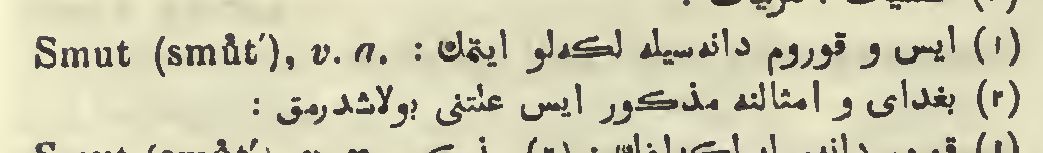 Smut (smŭt′), v. n. : (١) ايس و قوروم دانه‌سيله لكه‌لو ايتمك
(٢) بغداى و امثالنه مذكور ايس علتنى بولاشدرمق :